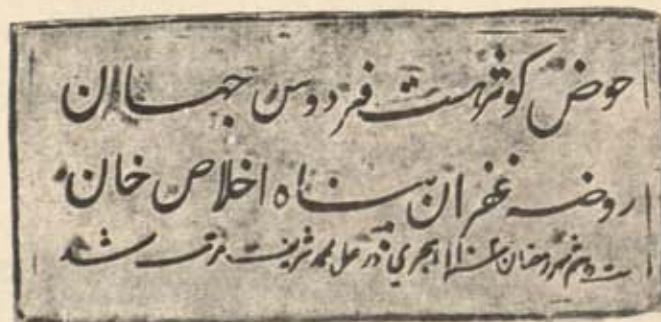 حوض کوثر هست فردوس جهان
روضه غفران پناه اخلاص خان
شهر رمضان هجري در عمل محمد شریف مرتب شد